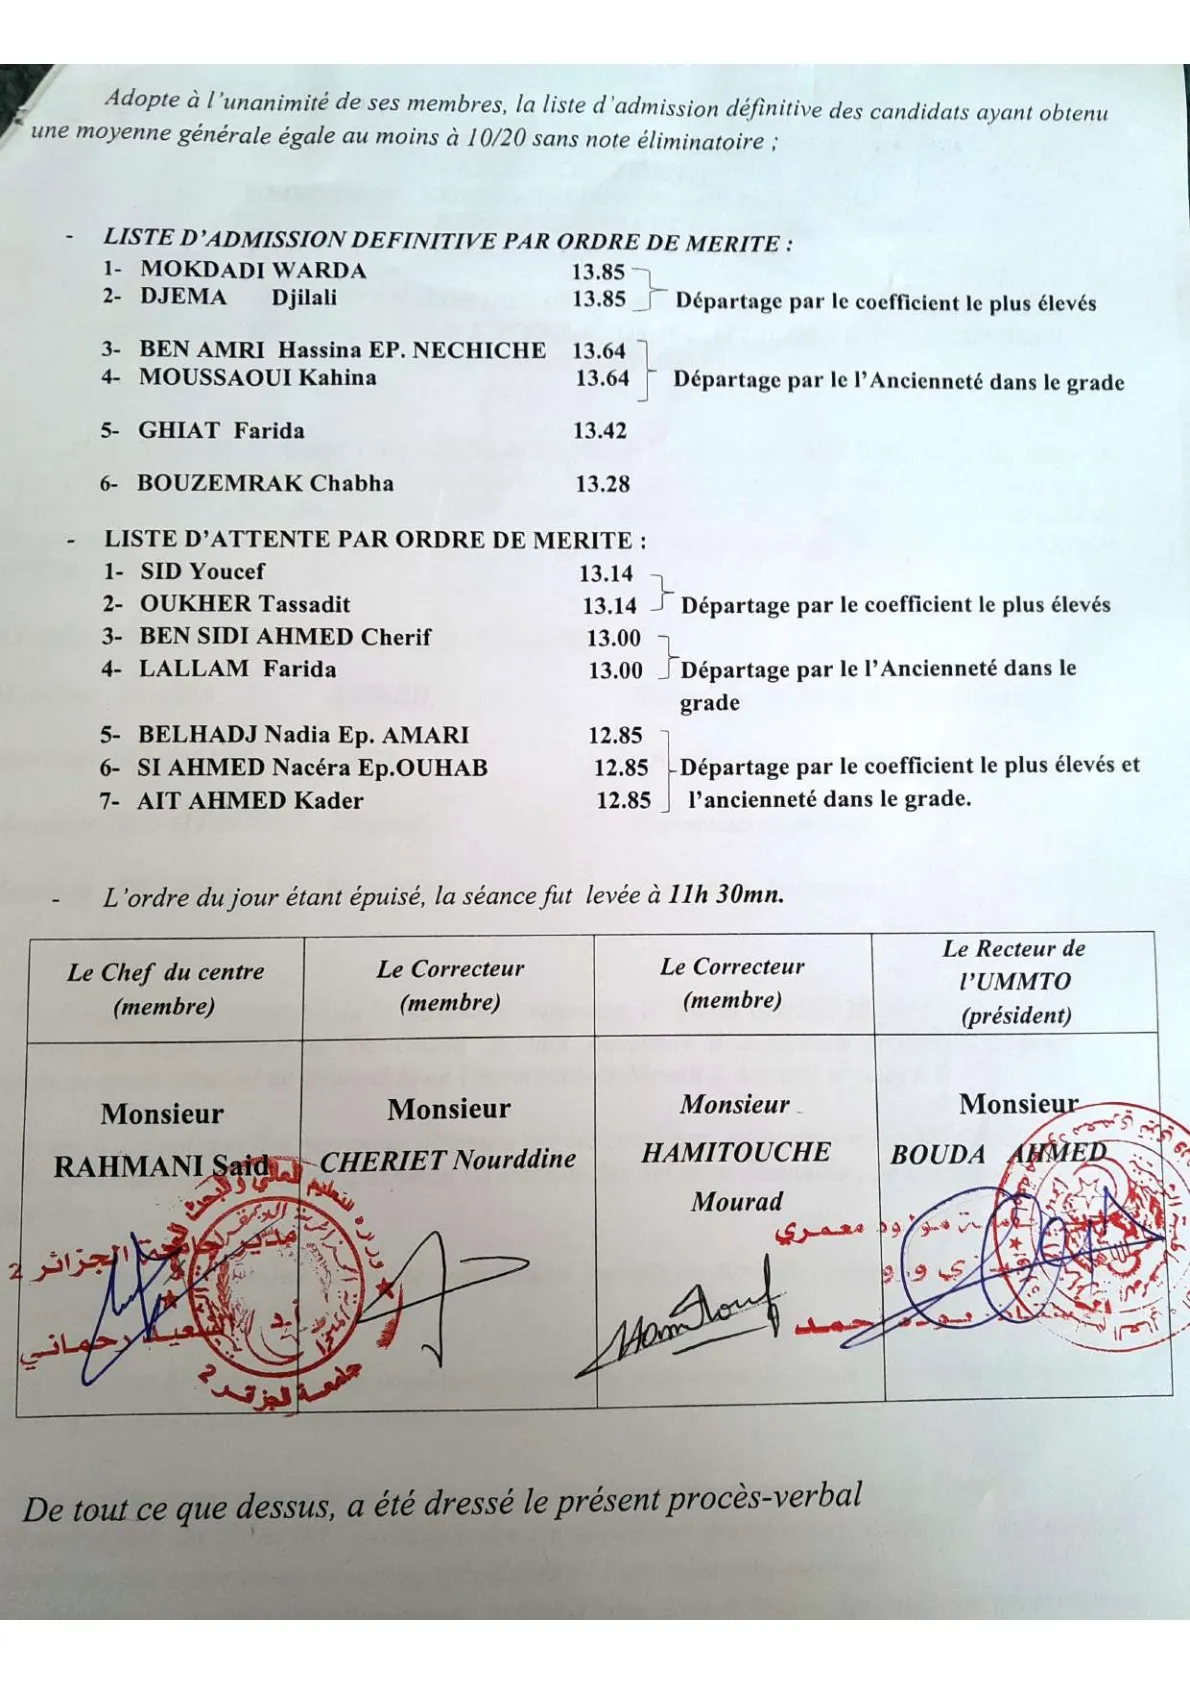 Adopte à l'unanimité de ses membres, la liste d'admission définitive des candidats ayant obtenu
une moyenne générale égale au moins à 10/20 sans note éliminatoire ;
- LISTE D'ADMISSION DEFINITIVE PAR ORDRE DE MERITE :
1- MOKDADI WARDA 13.85
2- DJEMA Djilali 13.85 Départage par le coefficient le plus élevés
3- BEN AMRI Hassina EP. NECHICHE 13.64
4- MOUSSAOUI Kahina 13.64 Départage par le l'Ancienneté dans le grade
5- GHIAT Farida 13.42
6- BOUZEMRAK Chabha 13.28
- LISTE D'ATTENTE PAR ORDRE DE MERITE :
1- SID Youcef 13.14
2- OUKHER Tassadit 13.14 Départage par le coefficient le plus élevés
3- BEN SIDI AHMED Cherif 13.00
4- LALLAM Farida 13.00 Départage par le l'Ancienneté dans le
grade
5- BELHADJ Nadia Ep. AMARI 12.85
6- SI AHMED Nacéra Ep.OUHAB 12.85 Départage par le coefficient le plus élevés et
7- AIT AHMED Kader 12.85 l'ancienneté dans le grade.
- L'ordre du jour étant épuisé, la séance fut levée à 11h 30mn.
Le Chef du centre
(membre)
Le Correcteur
(membre)
Le Correcteur
(membre)
Le Recteur de
l'UMMTO
(président)
Monsieur
RAHMANI Said
Monsieur
CHERIET Nourddine
Monsieur
HAMITOUCHE
Mourad
Monsieur
BOUDA AHMED
مدير جامعة الجزائر 2
السعيد رحماني
جامعة الجزائر 2
مولود معمري
De tout ce que dessus, a été dressé le présent procès-verbal